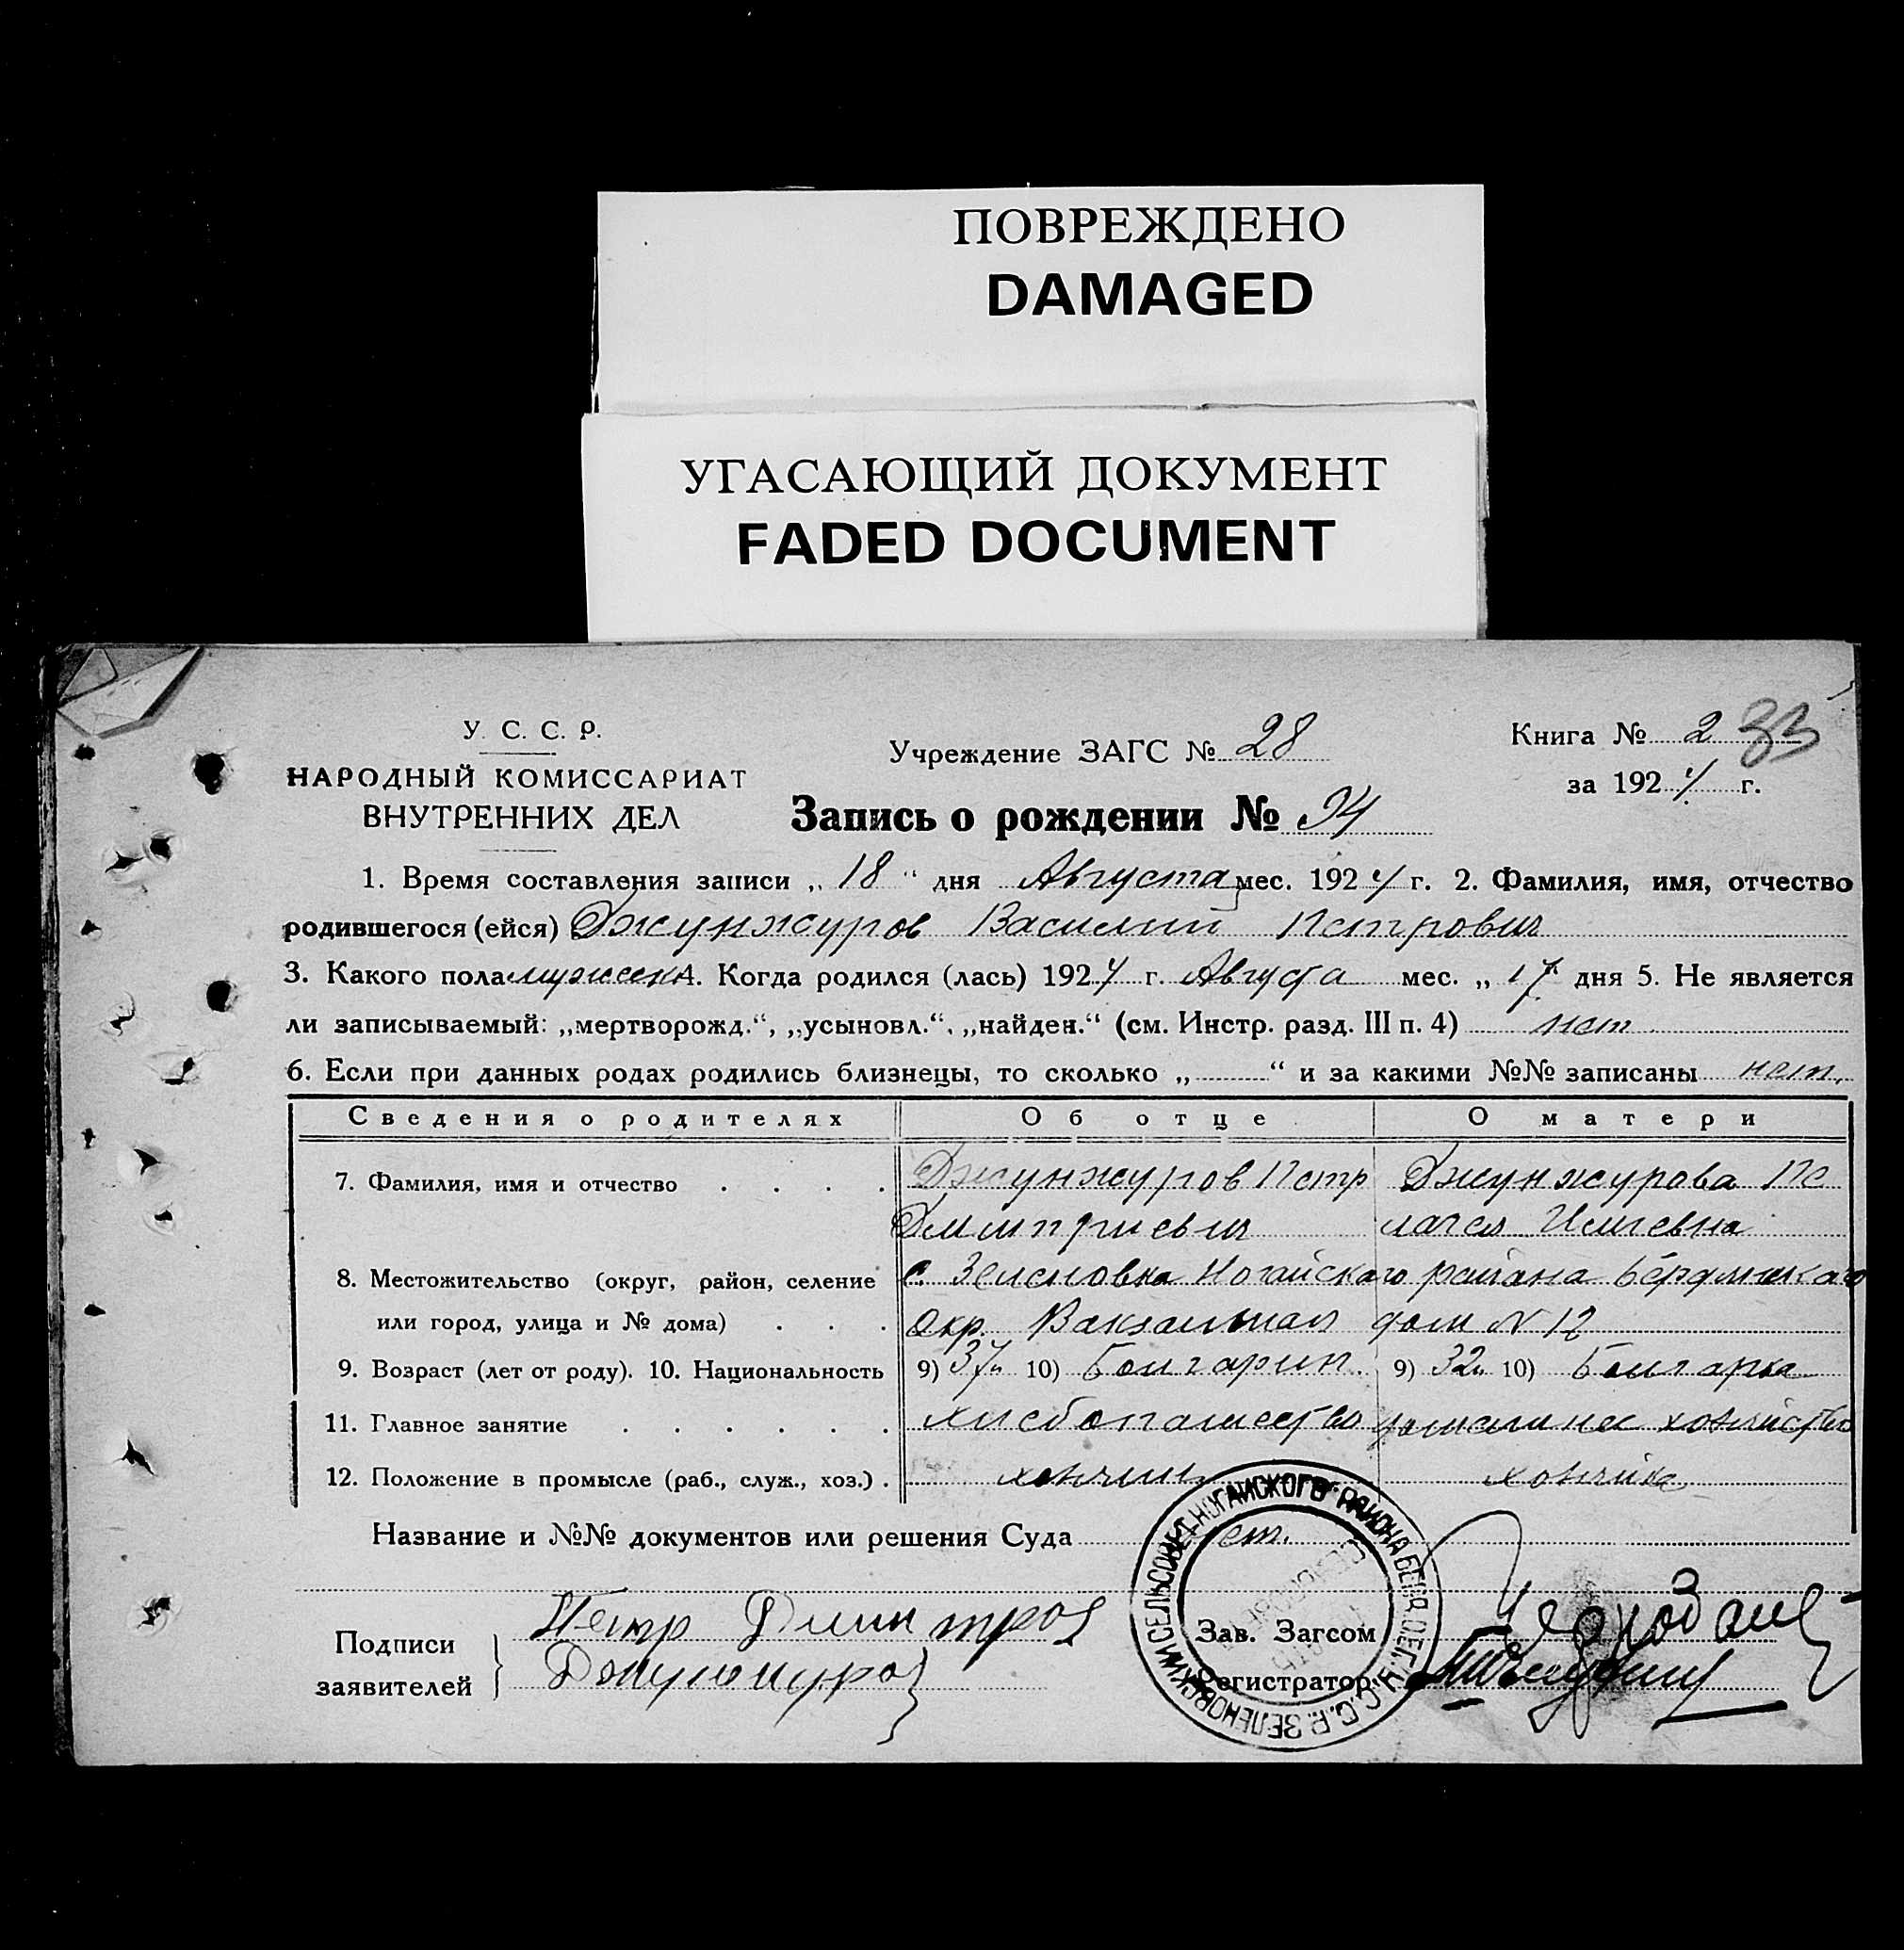 ПОВРЕЖДЕНО
DAMAGED
УГАСАЮЩИЙ ДОКУМЕНТ
FADED DOCUMENT
У. С. С. Р.
НАРОДНЫЙ КОМИССАРИАТ
ВНУТРЕННИХ ДЕЛ
Учреждение ЗАГС № 28
Книга № 2 33
за 1924 г.
Запись о рождении № 94
1. Время составления записи „ 18 “ дня Августа мес. 1924 г. 2. Фамилия, имя, отчество
родившегося (ейся) Джунжуров Василий Петрович
3. Какого пола мужск 4. Когда родился (лась) 1924 г. Августа мес. „ 17 дня 5. Не является
ли записываемый: „мертворожд.“, „усыновл.“, „найден.“ (см. Инстр. разд. III п. 4) нет
6. Если при данных родах родились близнецы, то сколько „ “ и за какими №№ записаны нет.
Сведения о родителях Об отце О матери
7. Фамилия, имя и отчество Джунжуров Петр Джунжурова Пе
Дмитриевич лагея Ильевна
8. Местожительство (округ, район, селение с. Зеленовка Ногайского района Бердянскаго
или город, улица и № дома) Окр. Вакзальная дом N 12
9. Возраст (лет от роду). 10. Национальность 9) 37 л. 10) Болгарин. 9) 32 л. 10) Болгарка
11. Главное занятие хлебопашество домашнее хозяйство
12. Положение в промысле (раб., служ., хоз.) хозяин хозяйка
Название и №№ документов или решения Суда нет.
Подписи заявителей
Петр Дмитров
Зав. Загсом
Регистратор
ЗЕЛЕНОВСКИЙ СЕЛЬСОВЕТ НОГАЙСКОГО РАЙОНА БЕРД.